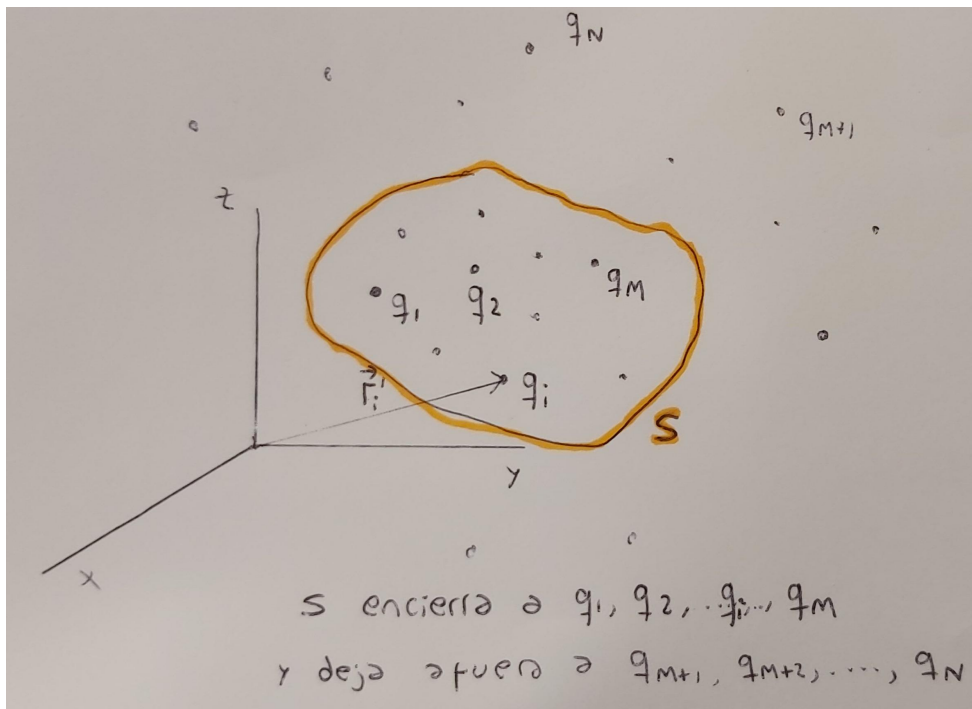 q_N
q_{M+1}
z
q_1 q_2 q_M
\vec{r}_i' q_i
S
y
x
S encierra a q_1, q_2, ...q_i..., q_M
y deja afuera a q_{M+1}, q_{M+2}, ...., q_N